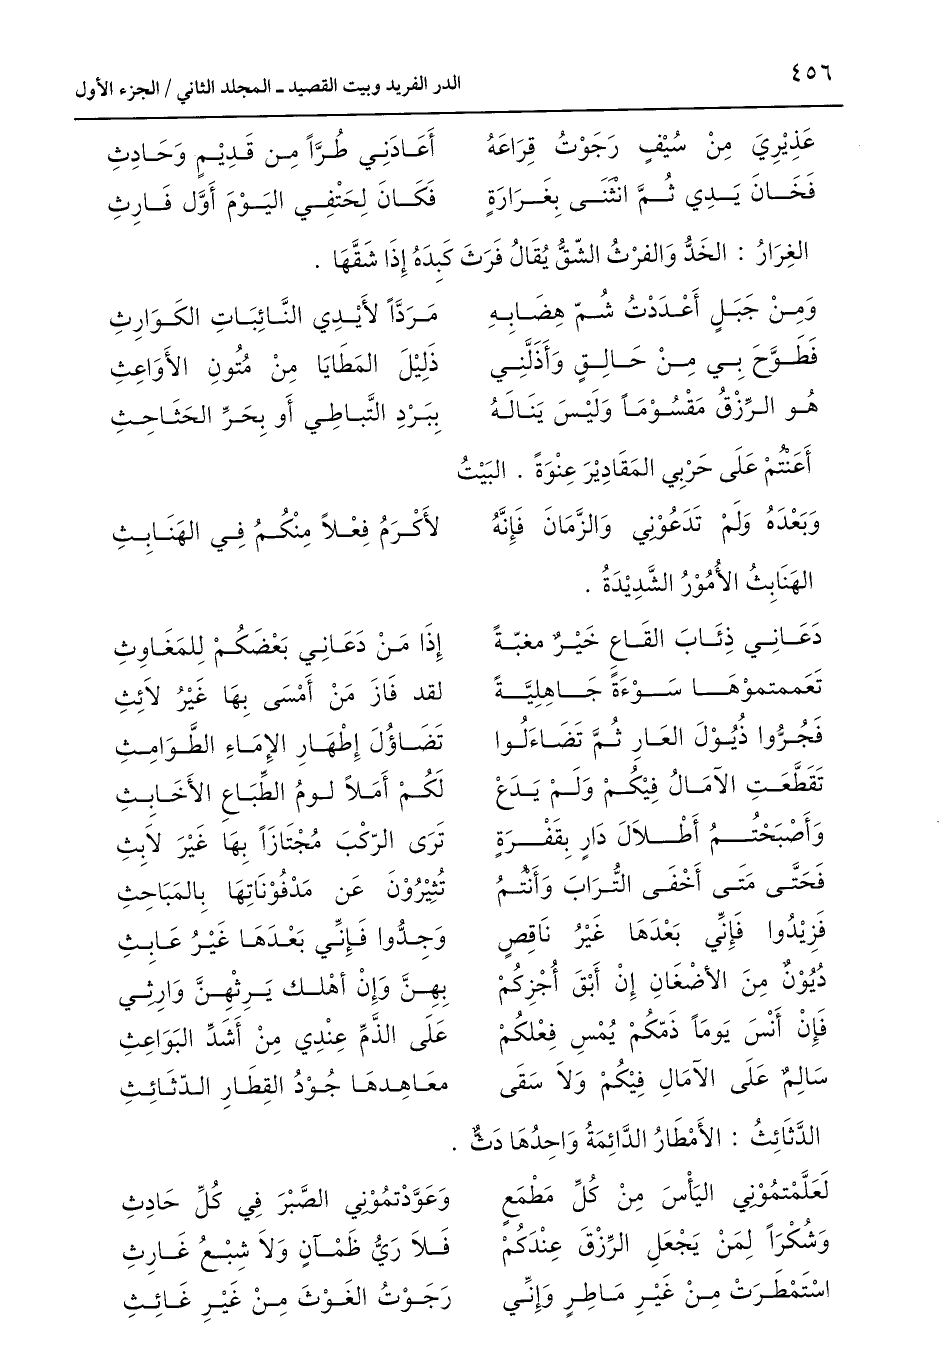 ٤٥٦
الدر الفريد وبيت القصيد ـ المجلد الثاني / الجزء الأول
عَذِيْرِيَ مِنْ سَيْفٍ رَجَوْتُ قِرَاعَهُ أَعَادَنِي طُرَّاً مِن قَدِيْمٍ وَحَادِثِ
فَخَانَ يَدِي ثُمَّ انْثَنَى بِغَرَارَةٍ فَكَانَ لِحَتْفِي اليَوْمَ أَوَّلَ فَارِثِ
الغِرَارُ : الحَدُّ وَالفَرْثُ الشَّقُّ يُقَالُ فَرَثَ كَبِدَهُ إِذَا شَقَّهَا .
وَمِنْ جَبَلٍ أَعْدَدْتُ شُمَّ هِضَابِهِ مَرَدَّاً لأَيْدِي النَّائِبَاتِ الكَوَارِثِ
فَطَوَّحَ بِي مِنْ حَالِقٍ وَأَذَلَّنِي ذَلِيْلَ المَطَايَا مِنْ مُتُونِ الأَوَاعِثِ
هُو الرِّزْقُ مَقْسُوْمَاً وَلَيْسَ يَنَالَهُ بِبَرْدِ التَّبَاطِي أو بِحَرِّ الحَثَاحِثِ
أَعَنْتُمْ عَلَى حَرْبِي المَقَادِيْرَ عِنْوَةً . البَيْتُ
وَبَعْدَهُ وَلَمْ تَدَعُوْنِي وَالزَّمَانَ فَإِنَّهُ لأَكْرَمُ فِعْلاً مِنْكُمُ فِي الهَنَابِثِ
الهَنَابِثُ الأُمُوْرُ الشَّدِيْدَةُ .
دَعَانِي ذِئَابَ القَاعِ خَيْرٌ مغبّةً إِذَا مَنْ دَعَانِي بَعْضَكُمْ لِلمَغَاوِثِ
تعممتموهَا سَوْءَةً جَاهِلِيَّةً لقد فَازَ مَنْ أَمْسَى بِهَا غَيْرُ لاَئِثِ
فَجُرُّوا ذُيُوْلَ العَارِ ثُمَّ تَضَاءَلُوا تَضَاؤُلَ إِطْهَارِ الإِمَاءِ الطَّوَامِثِ
تَقَطَّعَتِ الآمَالُ فِيْكُمْ وَلَمْ يَدَعْ لَكُمْ أَمَلاً لومُ الطِّبَاعِ الأَخَابِثِ
وَأَصْبَحْتُمُ أَطْلاَلَ دَارٍ بِقَفْرَةٍ تَرَى الرّكْبَ مُجْتَازَاً بِهَا غَيْرَ لاَبِثِ
فَحَتَّى مَتَى أخْفَى التُّرَابَ وَأَنْتُمُ تُثِيْرُوْنَ عَن مَدْفُوْنَاتِهَا بِالمَبَاحِثِ
فَزِيْدُوا فَإِنِّي بَعْدَهَا غَيْرُ نَاقِصٍ وَجِدُّوا فَإِنِّي بَعْدَهَا غَيْرُ عَابِثِ
دُيُوْنٌ مِنَ الأَضْغَانِ إِنْ أَبْقَ أَجْزِكُمْ بِهِنَّ وَإِنْ أَهْلك يَرِثْهِنَّ وَارِثِي
فَإِنْ أَنْسَ يَومَاً ذَمّكُمْ يُمْسِ فِعْلُكُمْ عَلَى الذَّمِّ عِنْدِي مِنْ أَشَدِّ البَوَاعِثِ
سَالِمٌ عَلَى الآمَالِ فِيْكُمْ وَلاَ سَقَى مَعَاهِدهَا جُوْدُ القِطَارِ الدّثَائِثِ
الدَّثَائِثُ : الأَمْطَارُ الدَّائِمَةُ وَاحِدُهَا دَثٌّ .
لَعَلَّمْتِمُوْنِي اليَأْسَ مِنْ كُلِّ مَطْمَعٍ وَعَوَّدْتمُوْنِي الصَّبْرَ فِي كُلِّ حَادِثِ
وَشُكْرَاً لِمَنْ يَجْعَلِ الرِّزْقَ عِنْدَكُمْ فَلاَ رَيُّ ظَمْآنٍ وَلاَ شبْعُ غَارِثِ
اسْتَمْطَرَتْ مِنْ غَيْرِ مَاطِرٍ وَإِنِّي رَجَوْتُ الغَوْثَ مِنْ غَيْرِ غَائِثِ